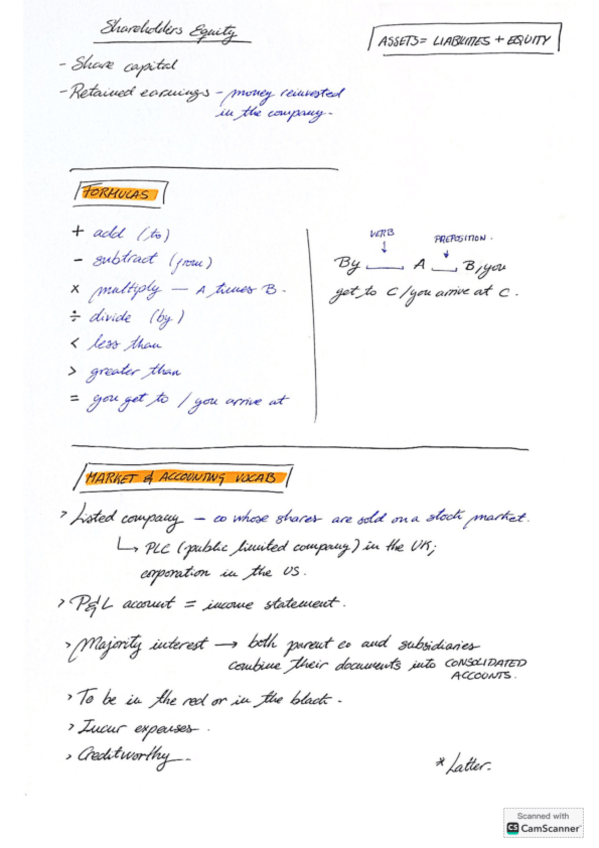 Shareholders Equity
ASSETS = LIABILITIES + EQUITY
- Share capital
- Retained earnings - money reinvested
in the company.
FORMULAS
+ add (to)
- subtract (from)
× multiply — A times B.
÷ divide (by)
< less than
> greater than
= you get to / you arrive at
VERB
PREPOSITION.
By ___ A ___ B, you
get to C / you arrive at C.
MARKET & ACCOUNTING VOCAB
> Listed company - co whose shares are sold on a stock market.
↳ PLC (public limited company) in the UK;
corporation in the US.
> P&L account = income statement.
> Majority interest → both parent co and subsidiaries
combine their documents into CONSOLIDATED
ACCOUNTS.
> To be in the red or in the black.
> Incur expenses.
> Creditworthy
* Latter.
Scanned with
CS CamScanner